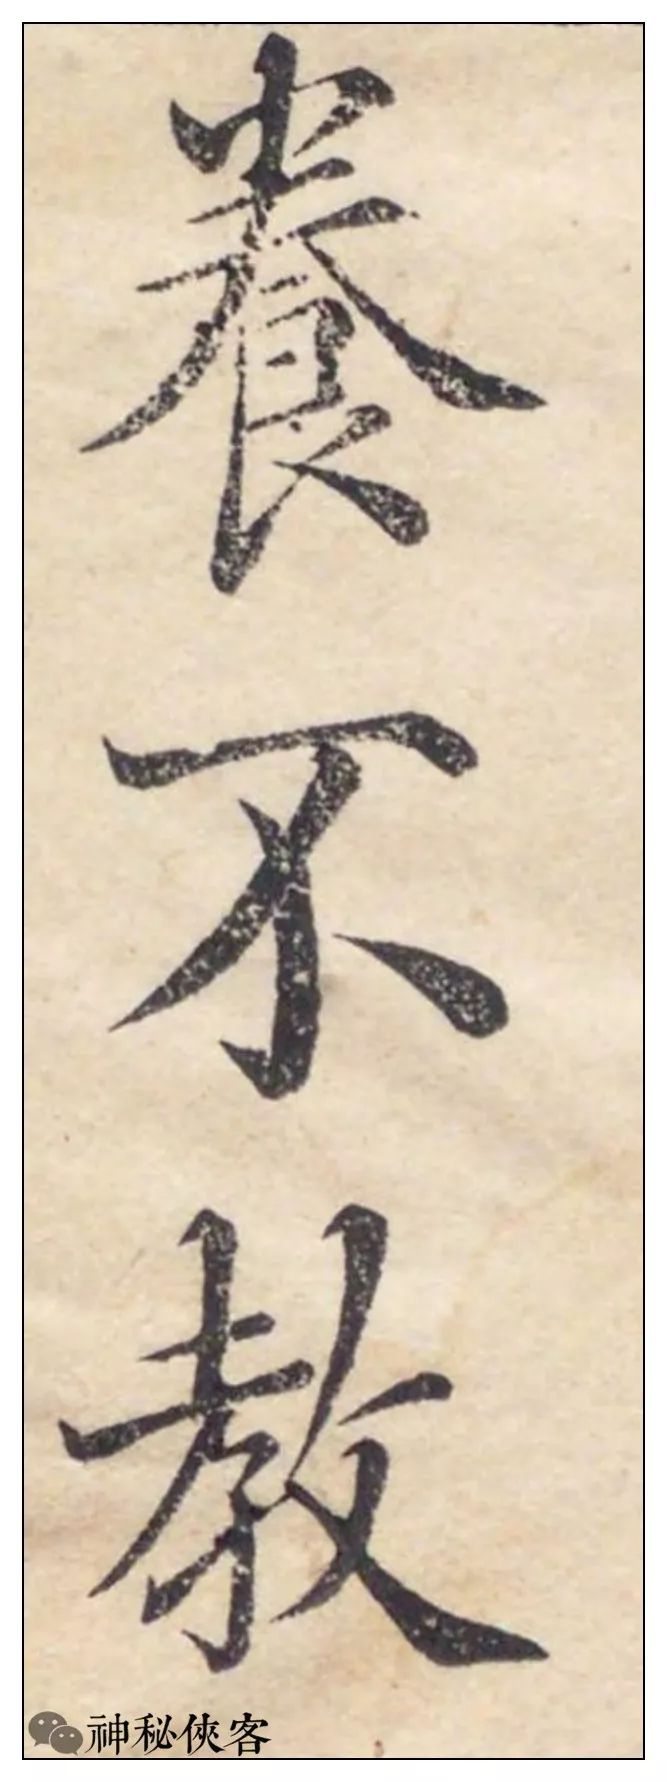 養不教
神秘俠客